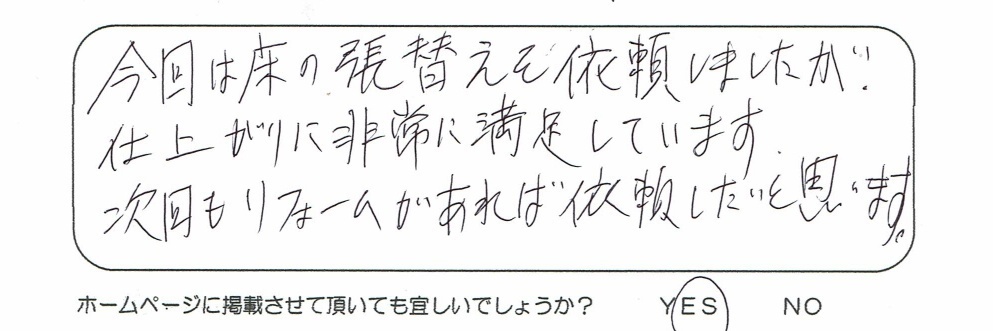 今回は床の張替えを依頼しましたが、
仕上がりに非常に満足しています。
次回もリフォームがあれば依頼したいと思います。
ホームページに掲載させて頂いても宜しいでしょうか？ YES NO